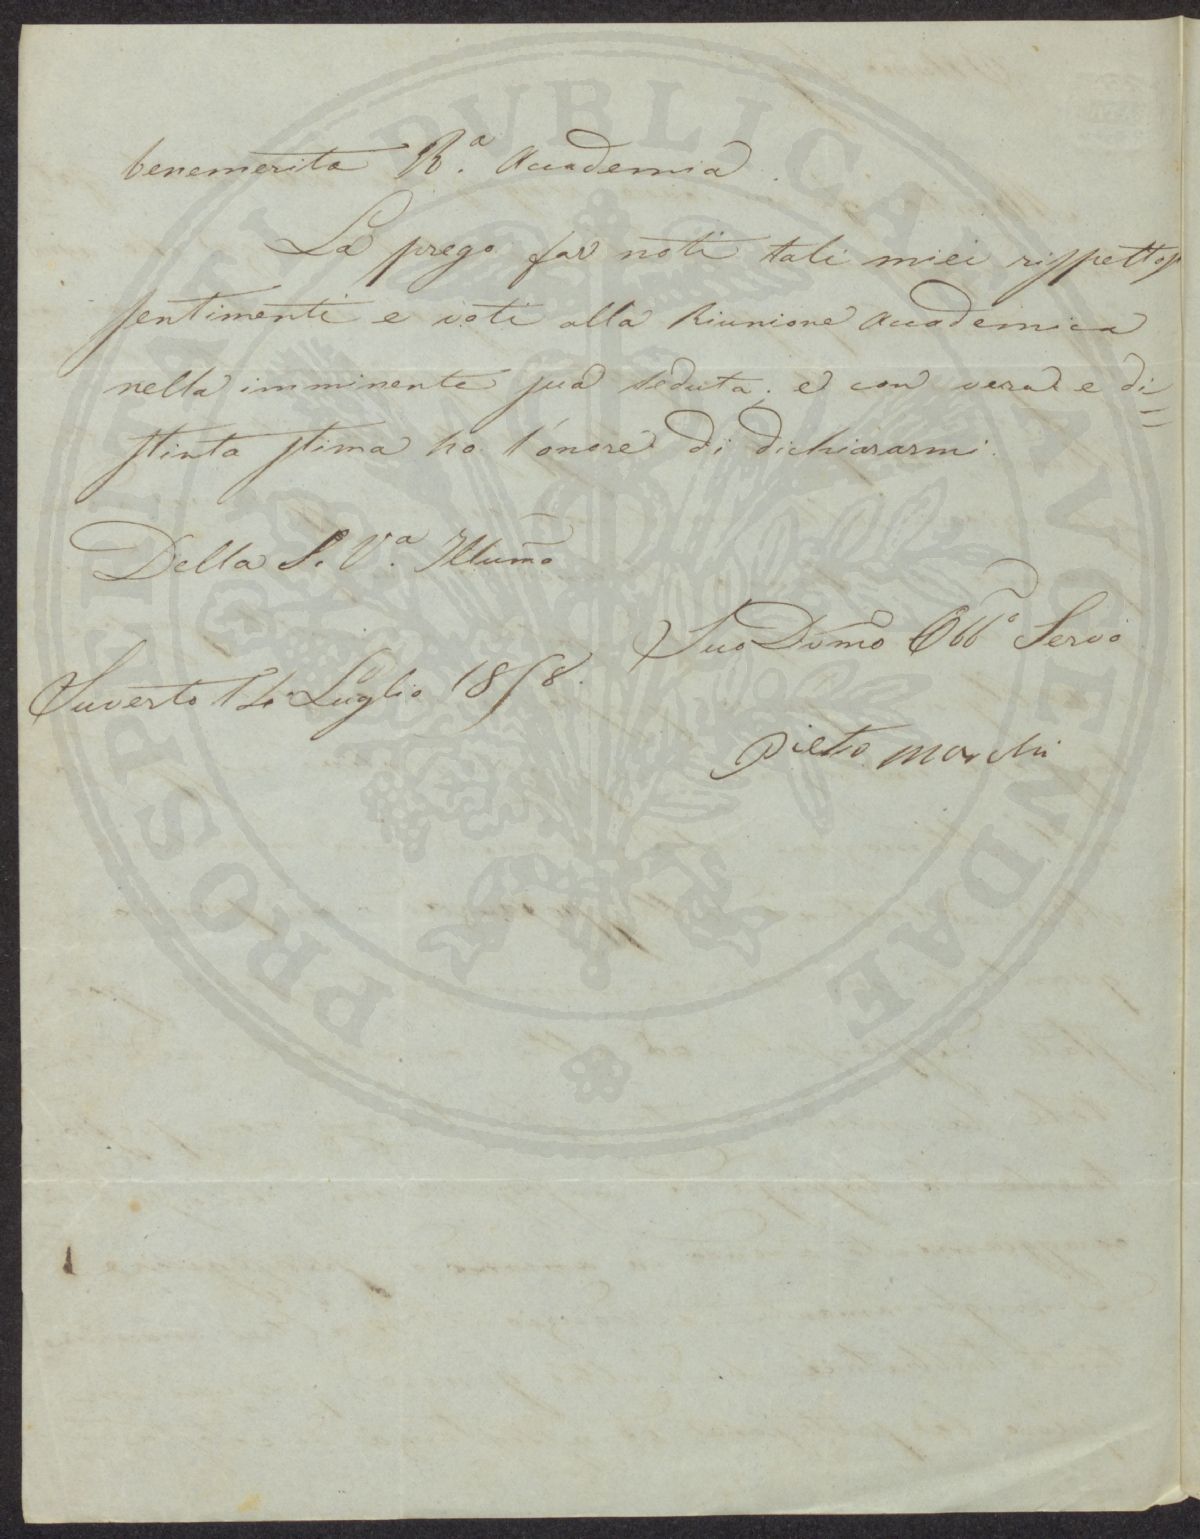 benemerita R.ª Accademia.
La prego far noti tali miei rispettosi
sentimenti e voti alla Riunione Accademica
nella imminente sua seduta; e con vera e di=
stinta stima ho l'onore di dichiararmi.
Della S. V.ª Illumo
Suo Dvmo Obbo Servo
Suvereto 14 Luglio 1858.
Pietro Marchi
PROSPERITATI PVBLICAE AVGENDAE